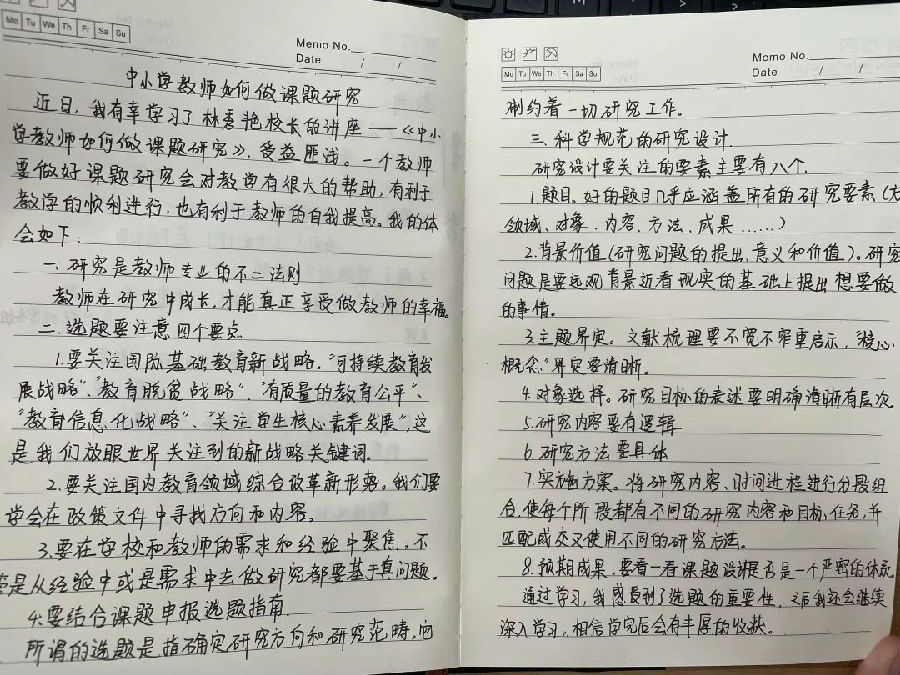 Mo Tu We Th Fr Sa Su
Memo No.
Date / /
中小学教师如何做课题研究
近日,我有幸学习了林秀艳校长的讲座——《中小
学教师如何做课题研究》,受益匪浅。一个教师
要做好课题研究会对教学有很大的帮助,有利于
教学的顺利进行,也有利于教师的自我提高。我的体
会如下:
一、研究是教师专业的不二法则
教师在研究中成长,才能真正享受做教师的幸福。
二、选题要注意四个要点
1.要关注国际基础教育新战略,“可持续教育发
展战略”、“教育脱贫战略”、“有质量的教育公平”、
“教育信息化战略”、“关注学生核心素养发展”,这
是我们放眼世界关注到的新战略关键词。
2.要关注国内教育领域综合改革新形势,我们要
学会在政策文件中寻找方向和内容。
3.要在学校和教师的需求和经验中聚焦。不
管是从经验中或是需求中去做研究都要基于真问题。
4.要结合课题申报选题指南
所谓的选题是指确定研究方向和研究范畴,它
Mo Tu We Th Fr Sa Su
Memo No.
Date / /
制约着一切研究工作。
三、科学规范的研究设计
研究设计要关注的要素主要有八个.
1.题目。好的题目几乎应涵盖所有的研究要素(大
领域、对象、内容、方法、成果……)
2.背景价值(研究问题的提出、意义和价值)。研究
问题是要远观背景近看现实的基础上提出想要做
的事情。
3.主题界定。文献梳理要不宽不窄重启示,“核心
概念”界定要清晰。
4.对象选择。研究目标的表述要明确清晰有层次
5.研究内容要有逻辑
6.研究方法要具体
7.实施方案。将研究内容、时间进程进行分段组
合,使每个阶段都有不同的研究内容和目标、任务,并
匹配或交叉使用不同的研究方法。
8.预期成果,要看一看课题设计是否是一个严密的体系
通过学习,我感受到了选题的重要性,之后我还会继续
深入学习,相信学完后会有丰厚的收获。